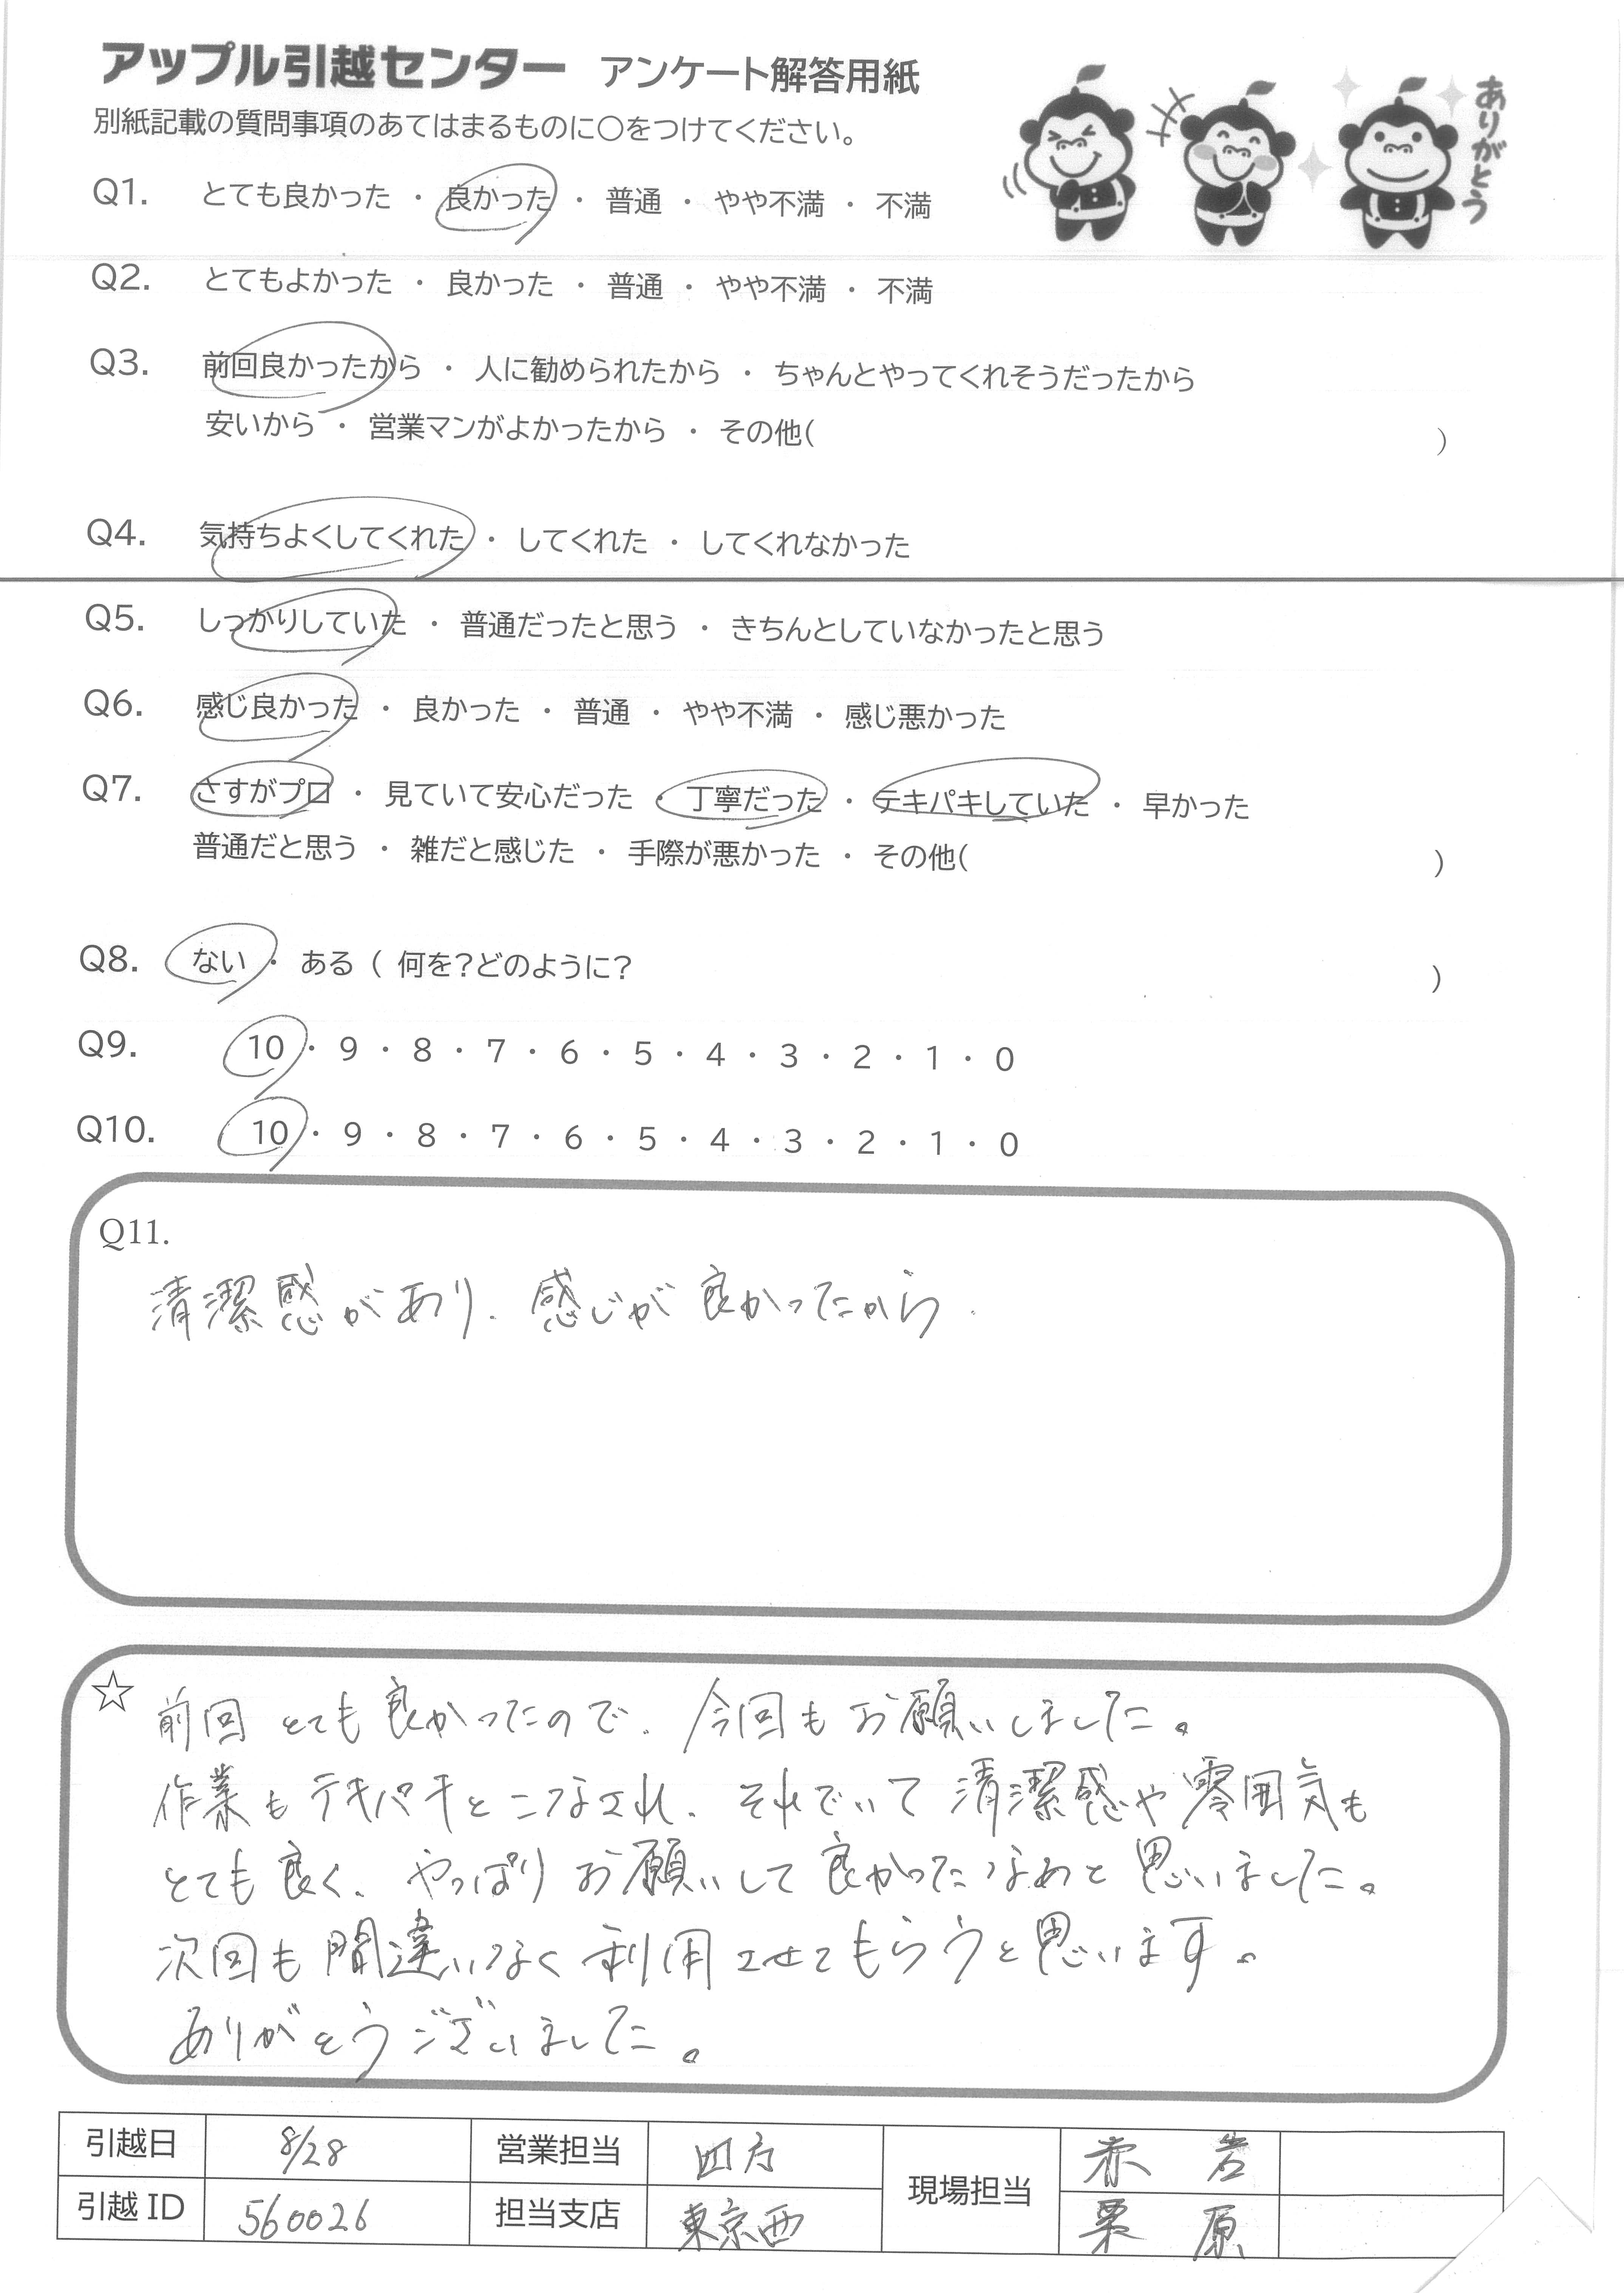 アップル引越センター アンケート解答用紙
別紙記載の質問事項のあてはまるものに○をつけてください。
ありがとう
Q1. とても良かった ・ 良かった ・ 普通 ・ やや不満 ・ 不満
Q2. とてもよかった ・ 良かった ・ 普通 ・ やや不満 ・ 不満
Q3. 前回良かったから ・ 人に勧められたから ・ ちゃんとやってくれそうだったから
安いから ・ 営業マンがよかったから ・ その他( )
Q4. 気持ちよくしてくれた ・ してくれた ・ してくれなかった
Q5. しっかりしていた ・ 普通だったと思う ・ きちんとしていなかったと思う
Q6. 感じ良かった ・ 良かった ・ 普通 ・ やや不満 ・ 感じ悪かった
Q7. さすがプロ ・ 見ていて安心だった ・ 丁寧だった ・ テキパキしていた ・ 早かった
普通だと思う ・ 雑だと感じた ・ 手際が悪かった ・ その他( )
Q8. ない ・ ある ( 何を?どのように? )
Q9. 10 ・ 9 ・ 8 ・ 7 ・ 6 ・ 5 ・ 4 ・ 3 ・ 2 ・ 1 ・ 0
Q10. 10 ・ 9 ・ 8 ・ 7 ・ 6 ・ 5 ・ 4 ・ 3 ・ 2 ・ 1 ・ 0
Q11.
清潔感があり、感じが良かったから.
☆ 前回とても良かったので、今回もお願いしました。
作業もテキパキとこなされ、それでいて清潔感や雰囲気も
とても良く、やっぱりお願いして良かったなあと思いました。
次回も間違いなく利用させてもらうと思います。
ありがとうございました。
引越日 8/28 営業担当 四方 現場担当 赤岩
引越ID 560026 担当支店 東京西 栗原